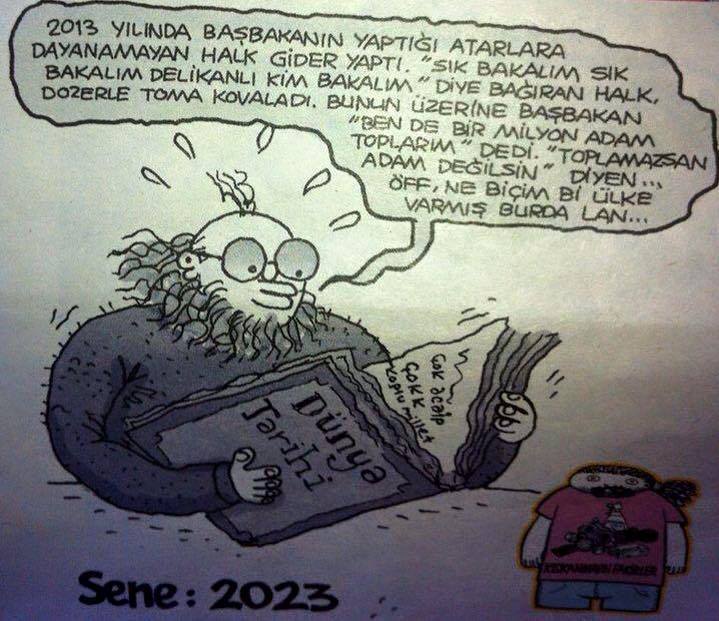 2013 YILINDA BAŞBAKANIN YAPTIĞI ATARLARA
DAYANAMAYAN HALK GİDER YAPTI. "SIK BAKALIM SIK
BAKALIM DELİKANLI KİM BAKALIM" DİYE BAĞIRAN HALK,
DOZERLE TOMA KOVALADI. BUNUN ÜZERİNE BAŞBAKAN
"BEN DE BİR MİLYON ADAM
TOPLARIM" DEDİ. "TOPLAMAZSAN
ADAM DEĞİLSİN" DİYEN...
ÖFF, NE BİÇİM Bİ ÜLKE
VARMIŞ BURDA LAN...
Çok acaip
ÇOKK
kopuu millet
Dünya
Tarihi
Sene: 2023